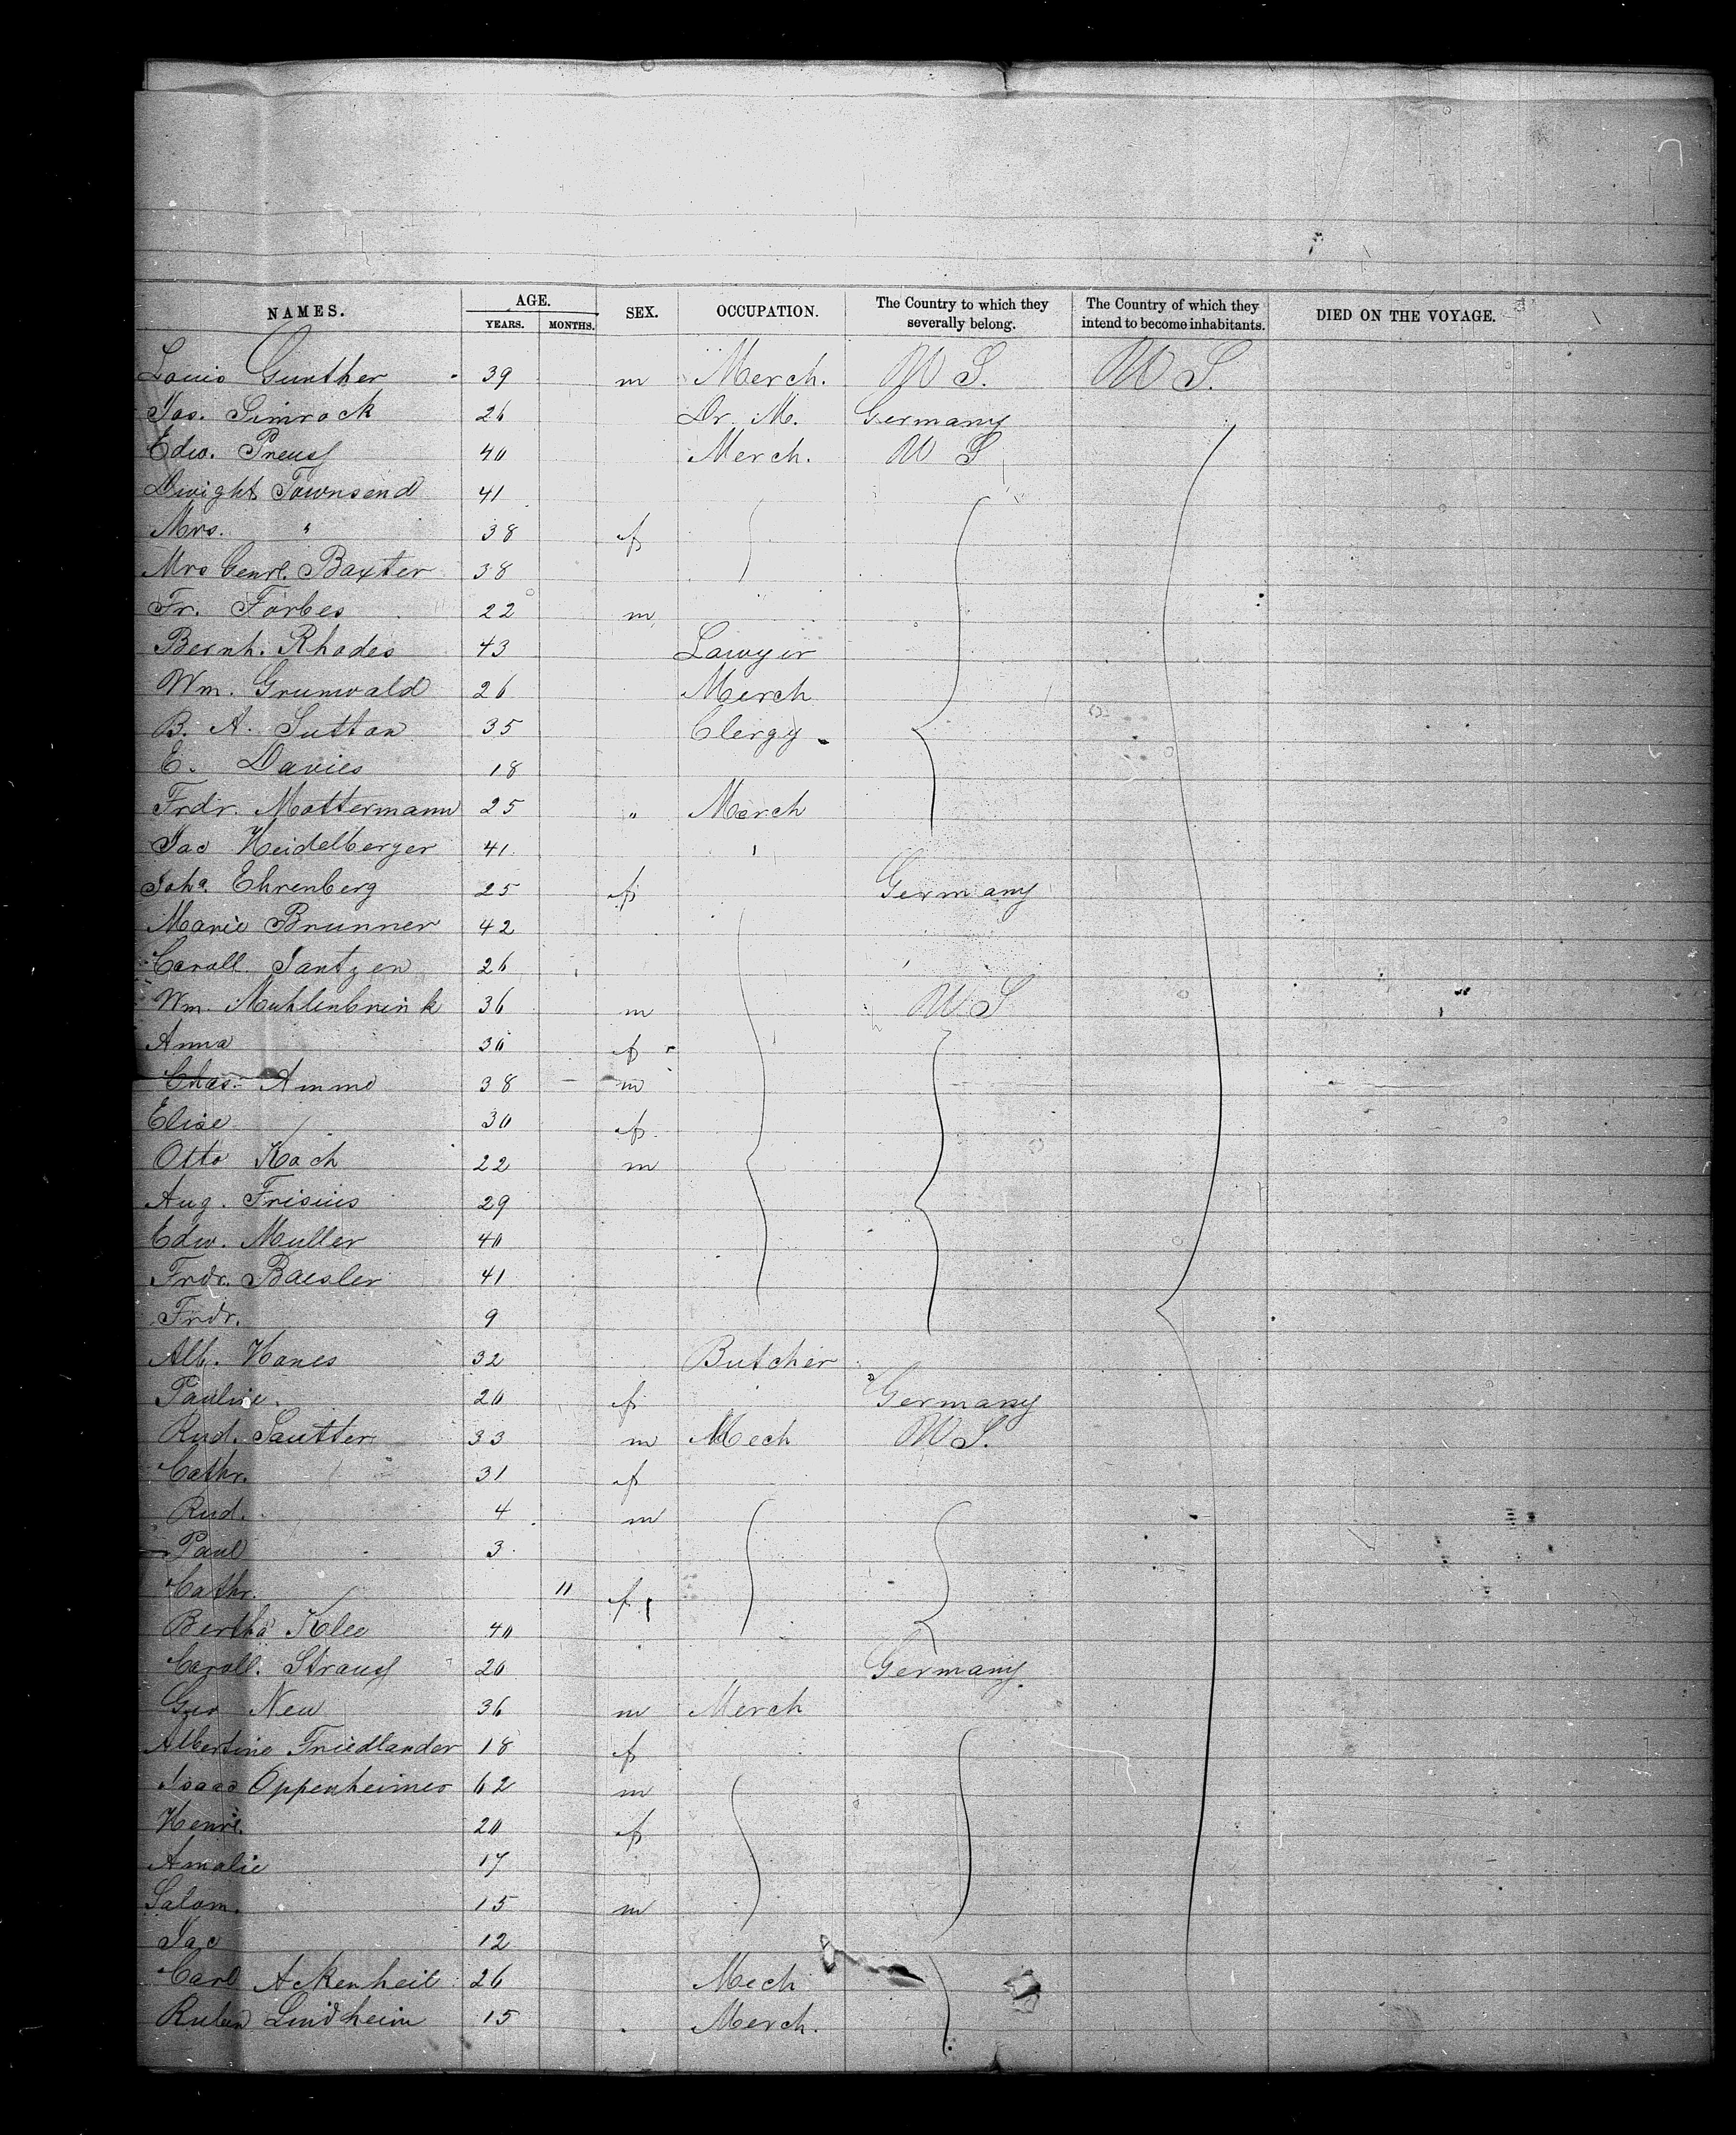 NAMES. AGE. SEX. OCCUPATION. The Country to which they severally belong. The Country of which they intend to become inhabitants. DIED ON THE VOYAGE.
YEARS. MONTHS.
Louis Gunther 39 m Merch. U S. U S.
Jos. Simrock 26 Dr. M. Germany
Edw. Preuss 40 Merch. U S
Dwight Townsend 41
Mrs. " 38 f
Mrs Genrl. Baxter 38
Fr. Forbes 22 m
Bernh. Rhodes 43 Lawyer
Wm. Grunwald 26 Merch
B. A. Sutton 35 Clergy
E. Davies 18
Frdr. Mottermann 25 " Merch
Jac Heidelberger 41
Joha. Ehrenberg 25 f Germany
Marie Brunner 42
Caroll. Jantzen 26
Wm. Muhlenbrink 36 m U S
Anna 30 f
Chas. Amme 38 m
Elise 30 f
Otto Koch 22 m
Aug. Frisius 29
Edw. Muller 40
Frdr. Baesler 41
Frdr. 9
Alb. Hanes 32 Butcher
Pauline 20 f Germany
Rud. Sautter 33 m Mech U S.
Cathr. 31 f
Rud. 4 m
Paul 3
Cathr. 11 f
Bertha Klee 40
Caroll. Strauss 20 Germany
Geo New 36 m Merch
Albertine Friedlander 18 f
Isaac Oppenheimer 62 m
Henri. 20 f
Amalie 17
Salom. 15 m
Jac 12
Carl Ackenheil 26 Mech
Ruben Lindheim 15 Merch.